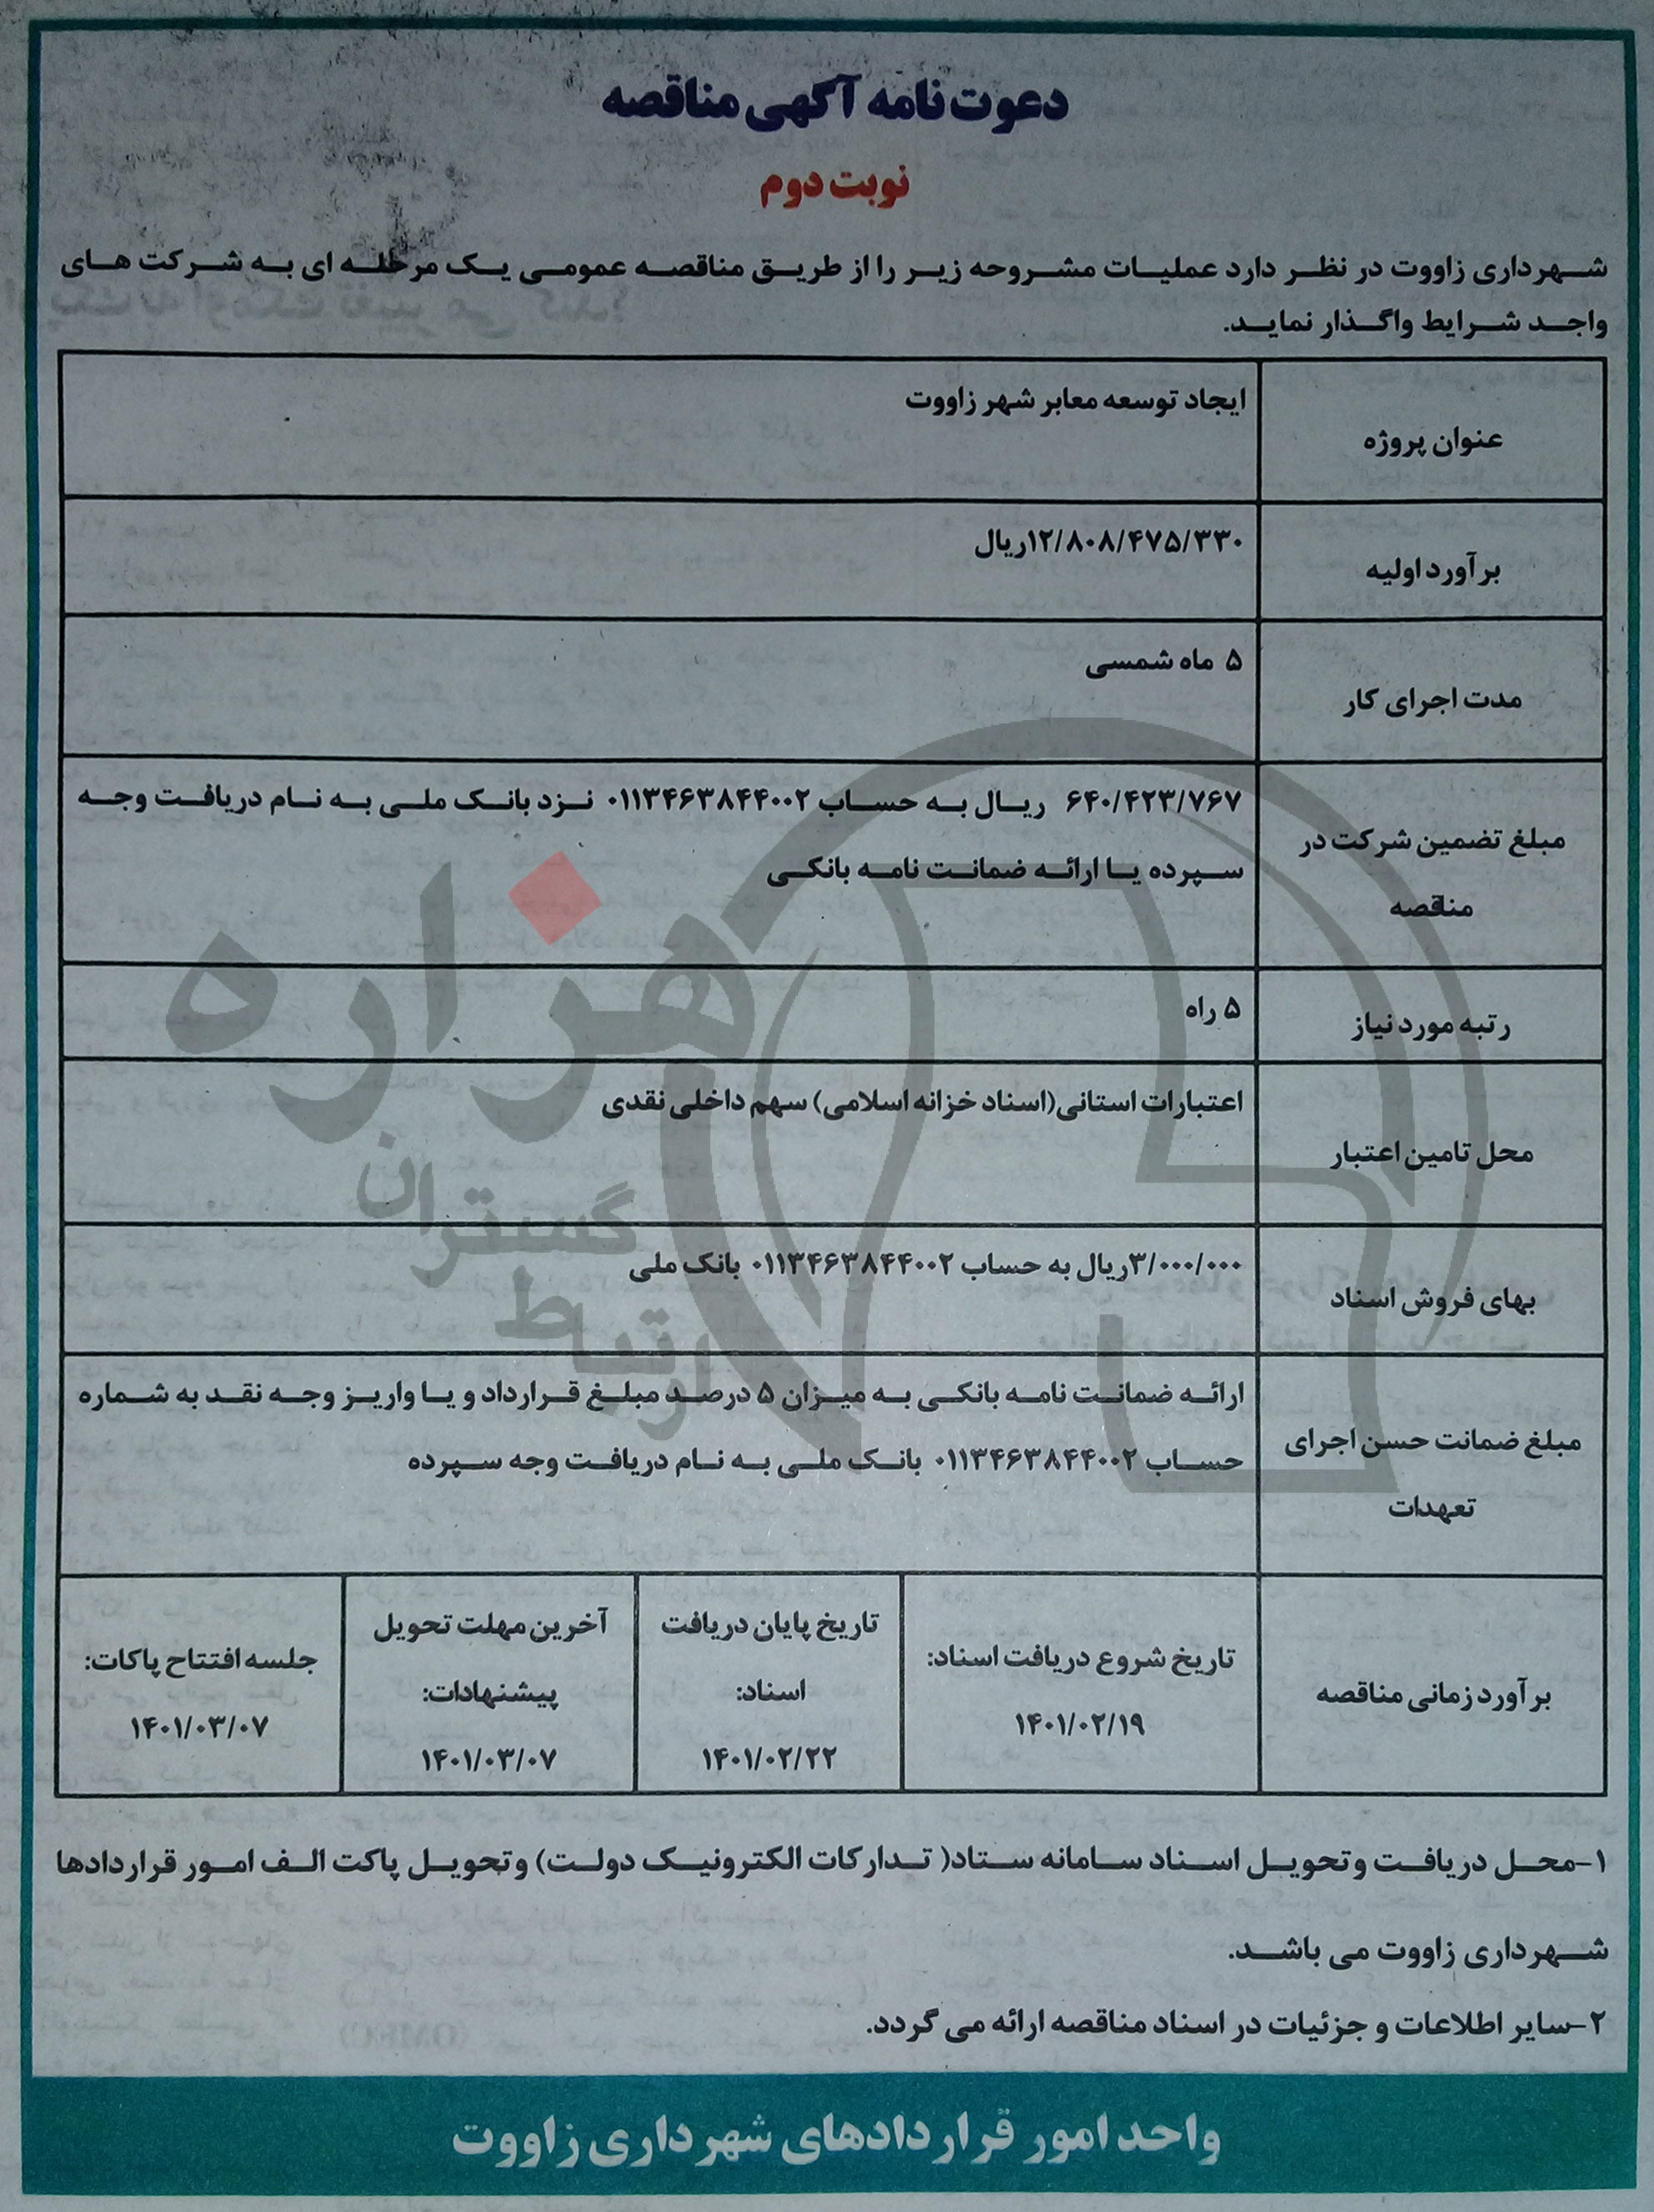 دعوت نامه آگهی مناقصه
نوبت دوم
شهرداری زاووت در نظر دارد عملیات مشروحه زیر را از طریق مناقصه عمومی یک مرحله ای به شرکت های
واجد شرایط واگذار نماید.
عنوان پروژه
ایجاد توسعه معابر شهر زاووت
برآورد اولیه
۱۲/۸۰۸/۴۷۵/۳۳۰ریال
مدت اجرای کار
۵ ماه شمسی
مبلغ تضمین شرکت در
مناقصه
۶۴۰/۴۲۳/۷۶۷ ریال به حساب ۰۱۱۳۴۶۳۸۴۴۰۰۲ نزد بانک ملی به نام دریافت وجه
سپرده یا ارائه ضمانت نامه بانکی
رتبه مورد نیاز
۵ راه
محل تامین اعتبار
اعتبارات استانی(اسناد خزانه اسلامی) سهم داخلی نقدی
بهای فروش اسناد
۳/۰۰۰/۰۰۰ریال به حساب ۰۱۱۳۴۶۳۸۴۴۰۰۲ بانک ملی
مبلغ ضمانت حسن اجرای
تعهدات
ارائه ضمانت نامه بانکی به میزان ۵ درصد مبلغ قرارداد و یا واریز وجه نقد به شماره
حساب ۰۱۱۳۴۶۳۸۴۴۰۰۲ بانک ملی به نام دریافت وجه سپرده
برآورد زمانی مناقصه
تاریخ شروع دریافت اسناد:
۱۴۰۱/۰۲/۱۹
تاریخ پایان دریافت
اسناد:
۱۴۰۱/۰۲/۲۲
آخرین مهلت تحویل
پیشنهادات:
۱۴۰۱/۰۳/۰۷
جلسه افتتاح پاکات:
۱۴۰۱/۰۳/۰۷
۱-محل دریافت وتحویل اسناد سامانه ستاد( تدارکات الکترونیک دولت) وتحویل پاکت الف امور قراردادها
شهرداری زاووت می باشد.
۲-سایر اطلاعات و جزئیات در اسناد مناقصه ارائه می گردد.
واحد امور قراردادهای شهرداری زاووت
هزاره
گستران
ارتباط